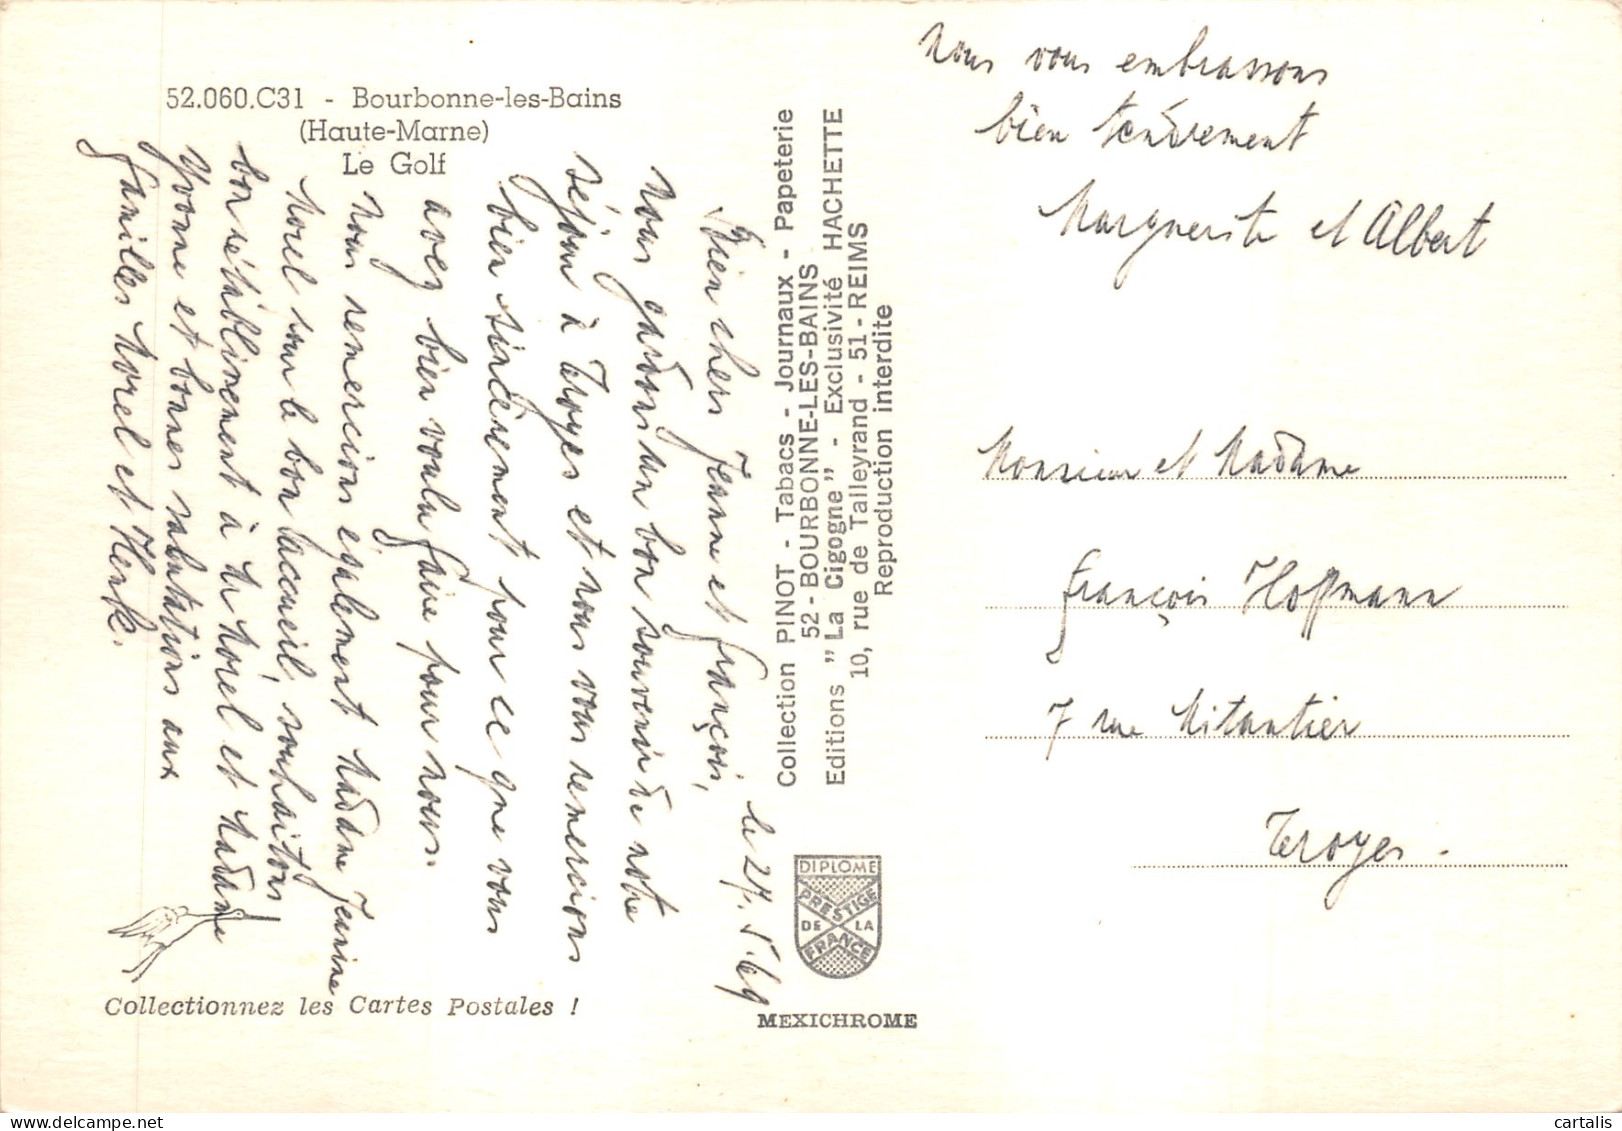 52.060.C31 - Bourbonne-les-Bains
(Haute-Marne)
Le Golf
le 27.5.69
Bien chers Jeanne et François,
nous gardons un bon souvenir de notre
séjour à Troyes et nous vous remercions
bien sincèrement pour ce que vous
avez bien voulu faire pour nous.
Nous remercions également Madame Jeanine
Morel sour le bon accueil, souhaitons
bon rétablinement à Mr Morel et Madame
Yvonne et bonnes salutations aux
familles Morel et Henk.
Collectionnez les Cartes Postales !
Collection PINOT - Tabacs - Journaux - Papeterie
52 - BOURBONNE-LES-BAINS
Editions "La Cigogne" - Exclusivité HACHETTE
10, rue de Talleyrand - 51 - REIMS
Reproduction interdite
DIPLOME
PRESTIGE
DE LA
FRANCE
MEXICHROME
Nous vous embrassons
bien tendrement
Marguerite et Albert
Monsieur et Madame
François Hoffmann
7 rue Mitantier
Troyes.
cartalis